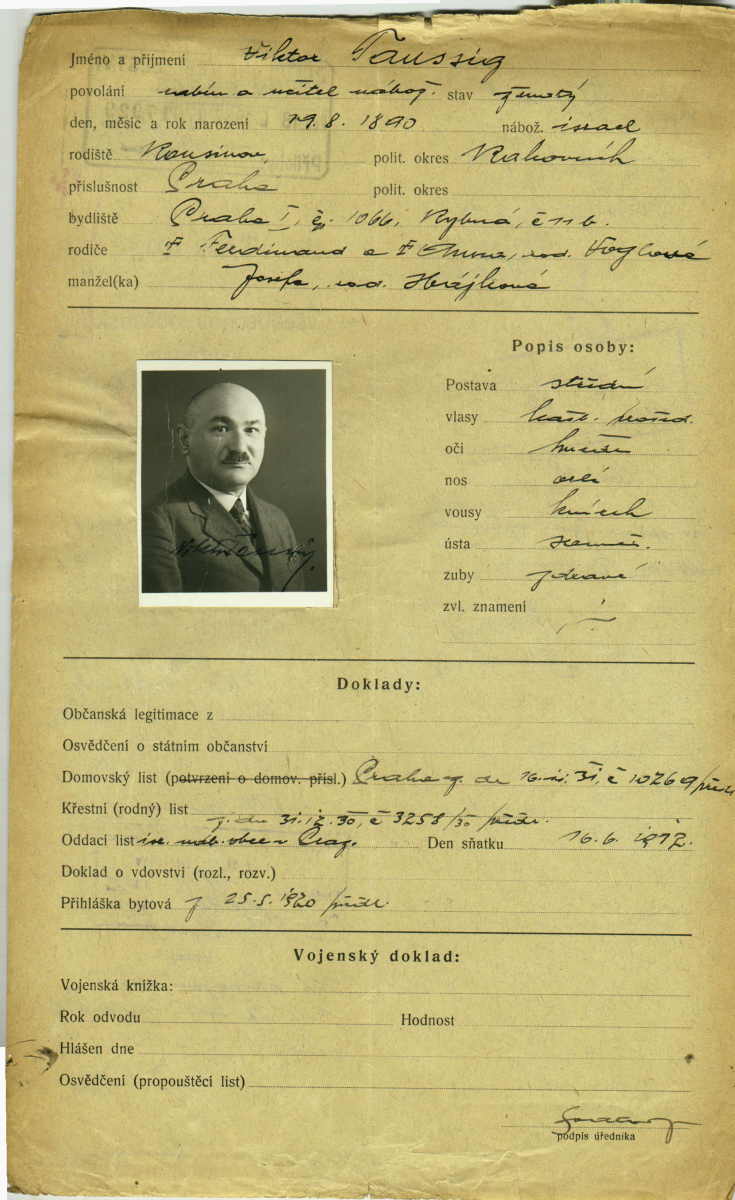 Jméno a příjmení Viktor Taussig
povolání rabín a učitel nábož. stav ženatý
den, měsíc a rok narození 19. 8. 1890 nábož. israel
rodiště Kounov, polit. okres Rakovník
příslušnost Praha polit. okres
bydliště Praha I, čp. 1066, Rybná, č 11 b.
rodiče Ferdinand a Anna, roz. Voglová
manžel(ka) Josefa, roz. Hráj
Popis osoby:
Postava střední
vlasy kašt. prošed.
oči hnědé
nos orlí
vousy knírek
ústa
zuby zdravé
zvl. znamení
Viktor Taussig
Doklady:
Občanská legitimace z
Osvědčení o státním občanství
Domovský list (potvrzení o domov. přísl.) Praha z. de 16. 31, č 10269/před
Křestní (rodný) list
z. dne 31. 12. 30, č 3258/30 předl.
Oddací list isr. náb. obce v Praz. Den sňatku 16. 6. 1912.
Doklad o vdovství (rozl., rozv.)
Přihláška bytová z 25. 5. 1920 předl.
Vojenský doklad:
Vojenská knížka:
Rok odvodu Hodnost
Hlášen dne
Osvědčení (propouštěcí list)
podpis úředníka